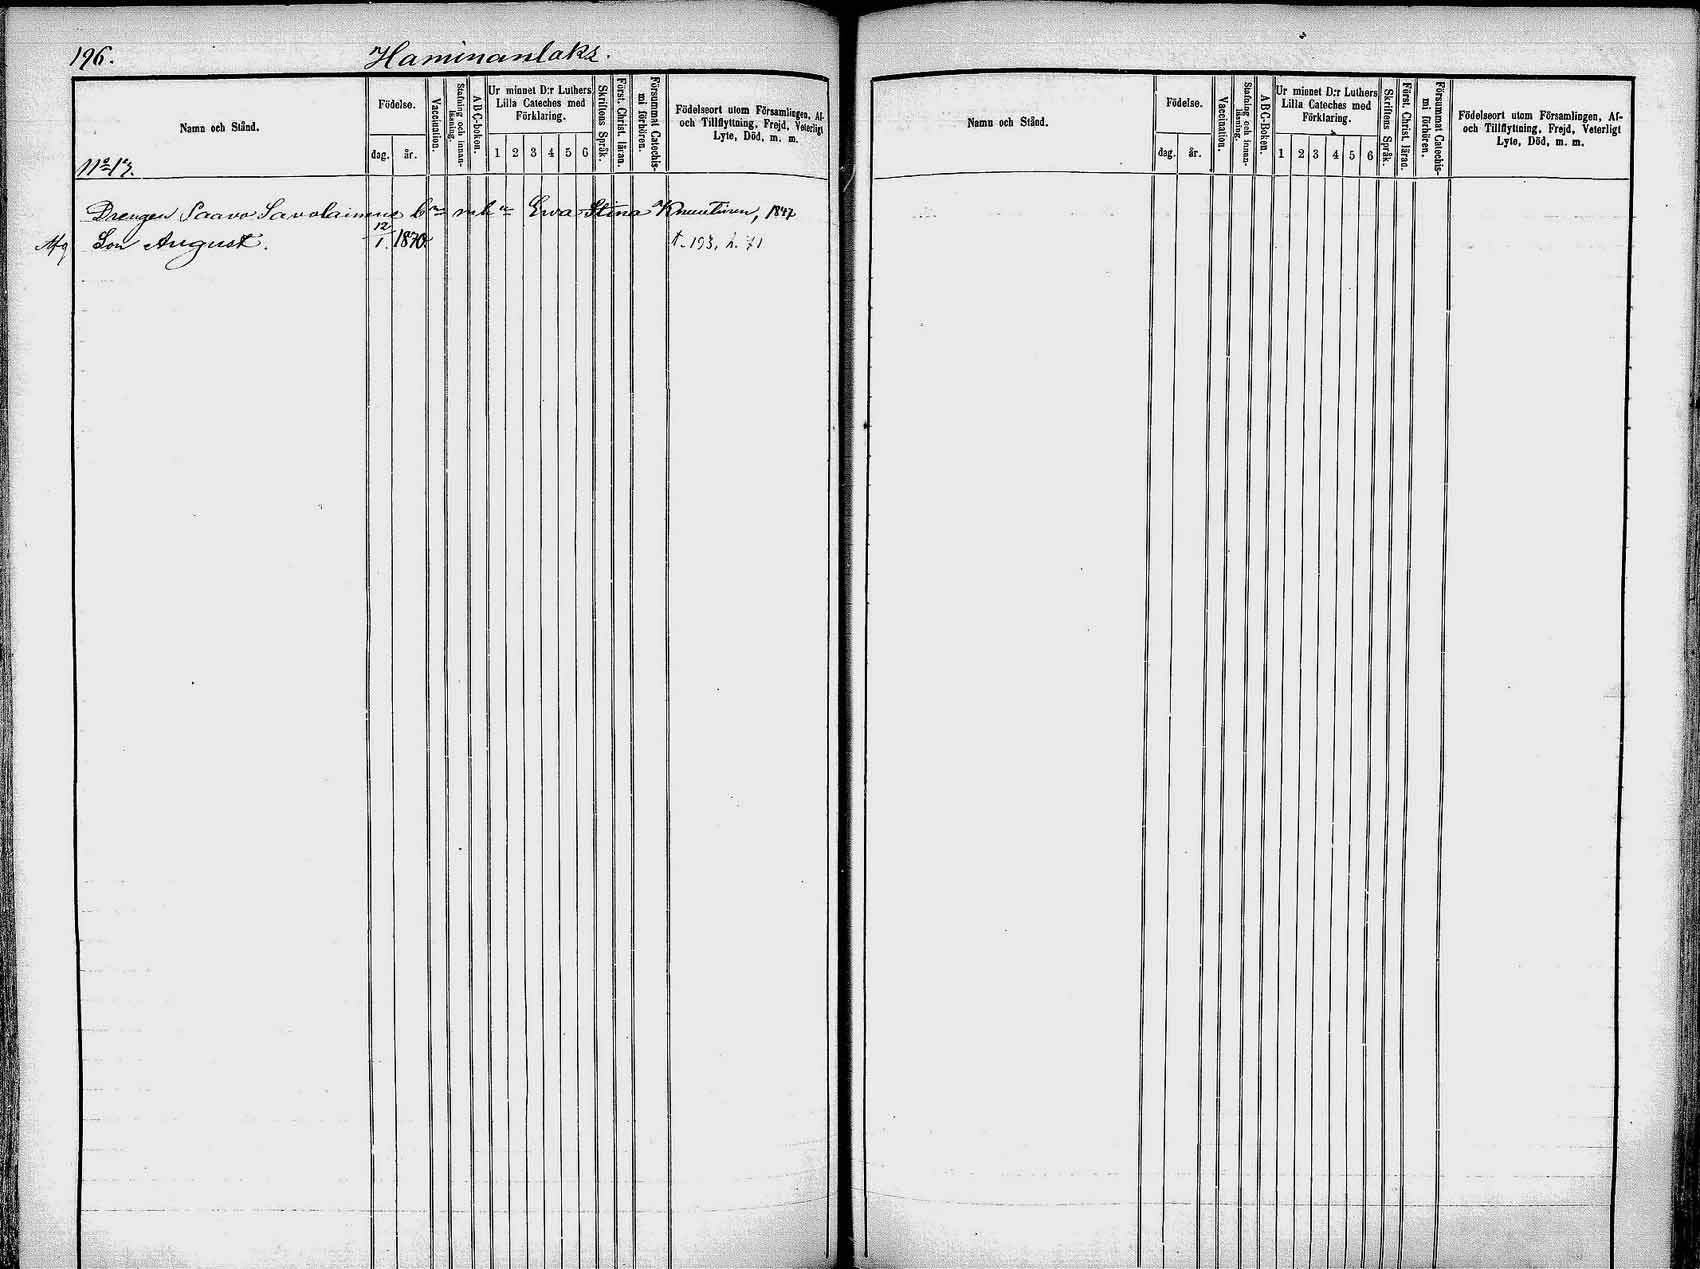 196. Haminanlaks.
Namn och Stånd.
Födelse.
dag. år.
Vaccination.
Stafning och innanläsning.
ABC-boken.
Ur minnet D:r Luthers
Lilla Cateches med
Förklaring.
1 2 3 4 5 6
Skriftens Språk.
Först. Christ. läran.
Försummat Catechismi förhören.
Födelseort utom Församlingen, Af-
och Tillflyttning, Frejd, Veterligt
Lyte, Död, m. m.
No 13.
Drengen Paavo Savolainens bn mh a Ewa Stina Knuutinen, 1847
Son August. 12/1. 1870. t. 193, h. 71
Namn och Stånd.
Födelse.
dag. år.
Vaccination.
Stafning och innanläsning.
ABC-Boken.
Ur minnet D:r Luthers
Lilla Cateches med
Förklaring.
1 2 3 4 5 6
Skriftens Språk.
Först. Christ. läran.
Försummat Catechismi förhören.
Födelseort utom Församlingen, Af-
och Tillflyttning, Frejd, Veterligt
Lyte, Död, m. m.